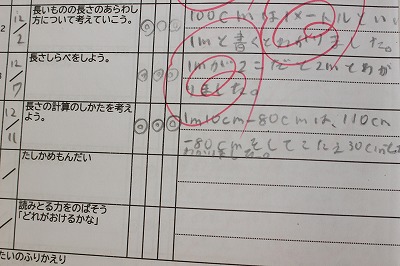 長いものの長さのあらわし
方について考えていこう。
12/2
100cmは1メートルとい
1mと書くとわかりました。
長さしらべをしよう。
12/7
1mが2こだと2mとわか
りました。
長さの計算のしかたを考え
よう。
12/11
1m10cm-80cmは、110cm
-80cmをしてこたえ30cm
たしかめもんだい
読みとる力をのばそう
「どれがおけるかな」
たいのふりかえり